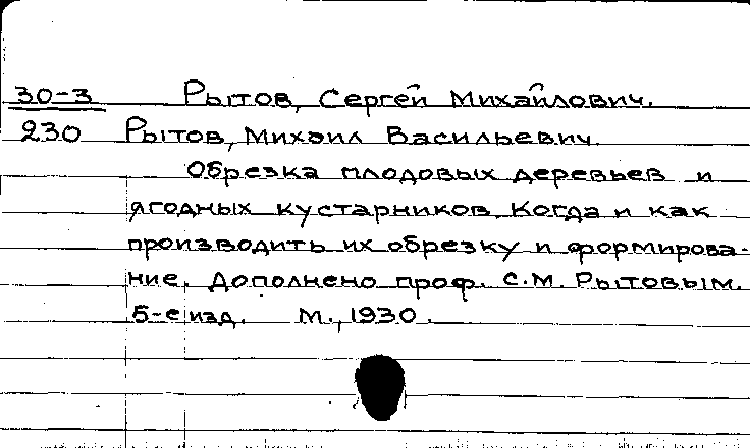 30-3 Рытов, Сергей Михайлович.
230 Рытов, Михаил Васильевич.
Обрезка плодовых деревьев и
ягодных кустарников. Когда и как
производить их обрезку и формирова-
ние. Дополнено проф. С.М. Рытовым.
5-е изд. М., 1930.